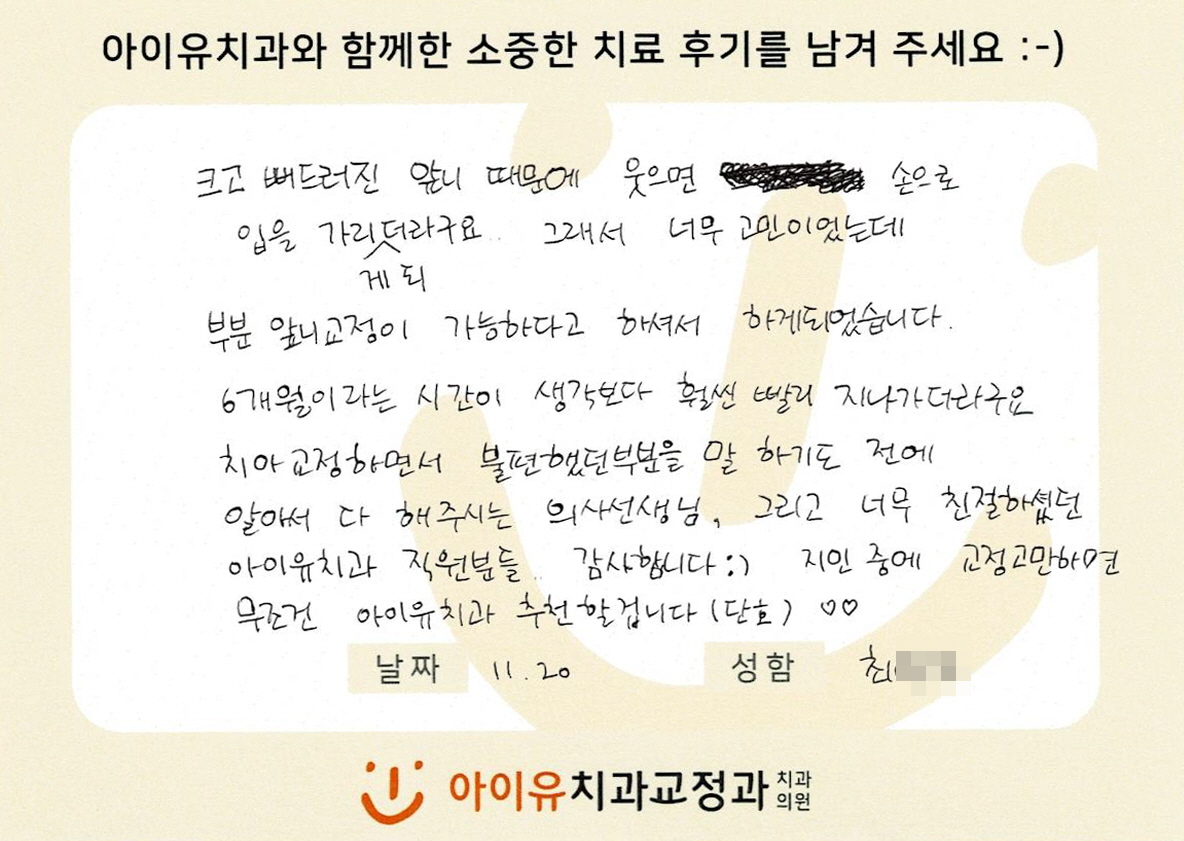 아이유치과와 함께한 소중한 치료 후기를 남겨 주세요 :-)
크고 뻐드러진 앞니 때문에 웃으면 손으로
입을 가리더라구요.. 그래서 너무 고민이었는데
게 되
부분 앞니교정이 가능하다고 하셔서 하게되었습니다.
6개월이라는 시간이 생각보다 훨씬 빨리 지나가더라구요
치아교정하면서 불편했던부분을 말 하기도 전에
알아서 다 해주시는 의사선생님, 그리고 너무 친절하셨던
아이유치과 직원분들.. 감사합니다 :) 지인 중에 교정고민하면
무조건 아이유치과 추천할겁니다 (단호) ♡♡
날짜 11.20 성함 최
아이유치과교정과 치과
의원